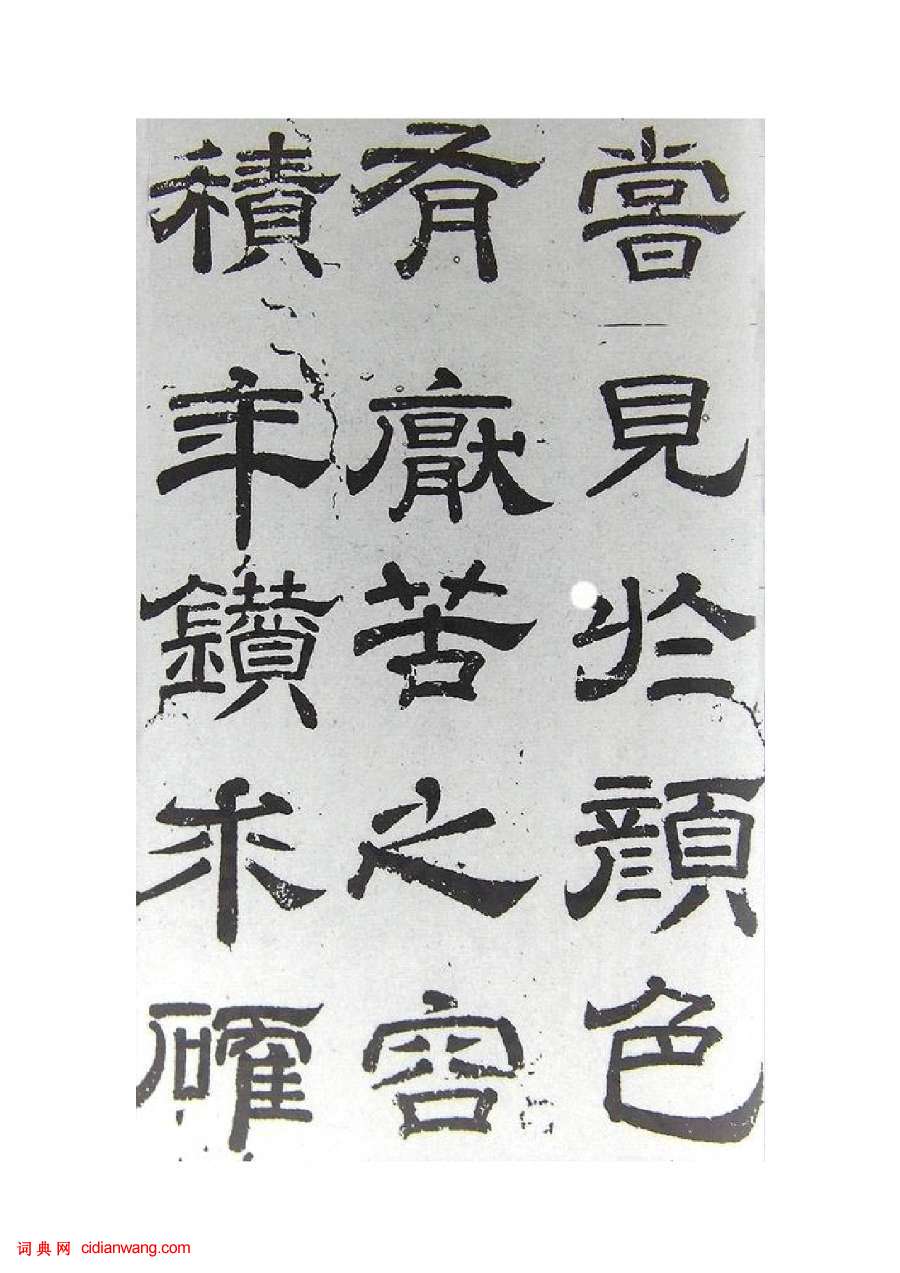 嘗見於顏色
有厭苦之容
積年鑽求確
词典网 cidianwang.com